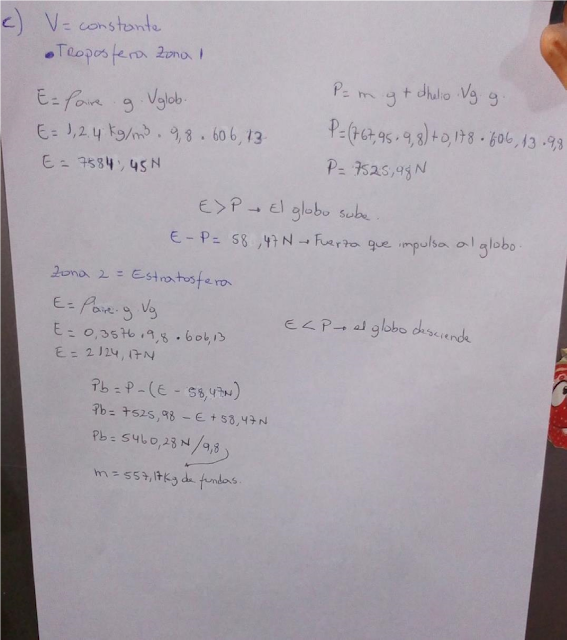 c) V = constante
• Troposfera Zona 1
E = ρaire g. Vglob.
E = 1,24 kg/m³ . 9,8 . 606,13.
E = 7584,45N
P = m g + dhelio . Vg g.
P = (767,95 . 9,8) + 0,178 . 606,13 . 9,8
P = 7525,98N
E > P → El globo sube.
E - P = 58,47N → Fuerza que impulsa al globo.
Zona 2 = Estratosfera
E = ρaire. g Vg
E = 0,3576 . 9,8 . 606,13
E = 2124,17N
E < P → el globo desciende
Pb = P - (E - 58,47N)
Pb = 7525,98 - E + 58,47N
Pb = 5460,28N / 9,8
m = 557,17Kg de fundas.